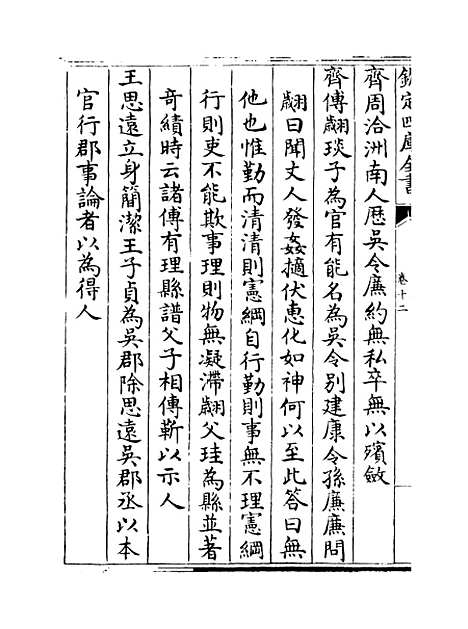 欽定四庫全書
卷十二
齊周洽洲南人歴吳令廉約無私卒無以殯斂
齊傅翽琰子為官有能名為吳令别建康令孫廉廉問
翽曰聞丈人發姦擿伏惠化如神何以至此答曰無
他也惟勤而清清則憲綱自行勤則事無不理憲綱
行則吏不能欺事理則物無凝滯翽父珪為縣並著
奇績時云諸傅有理縣譜父子相傳靳以示人
王思遠立身簡潔王子貞為吳郡除思遠吳郡丞以本
官行郡事論者以為得人